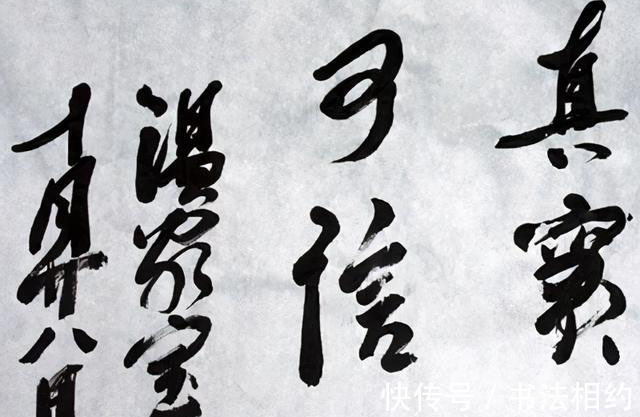 真實
可信
温家宝
十月廿八日
快传号 / 书法相约